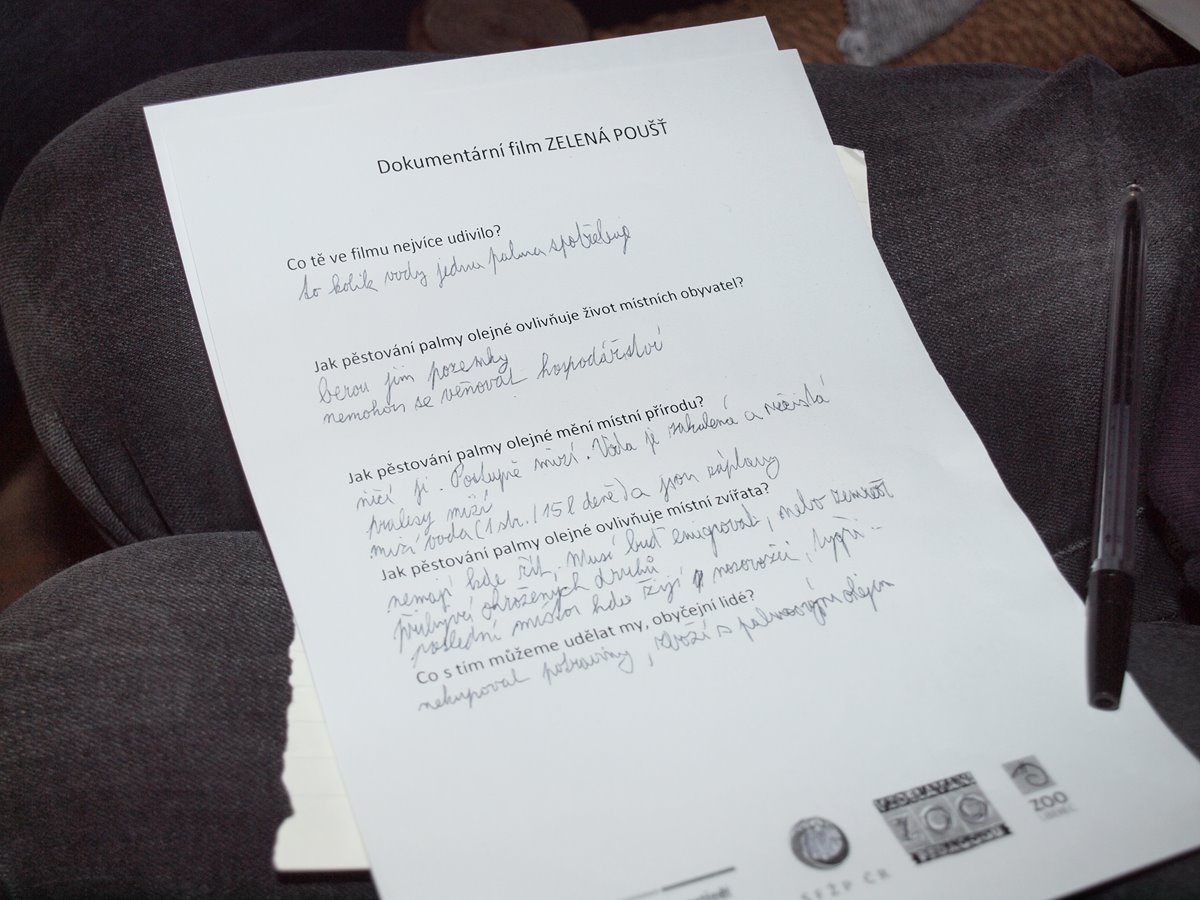 Dokumentární film ZELENÁ POUŠŤ
Co tě ve filmu nejvíce udivilo?
to kolik vody jedna palma spotřebuje
Jak pěstování palmy olejné ovlivňuje život místních obyvatel?
berou jim pozemky
nemohou se věnovat hospodářství
Jak pěstování palmy olejné mění místní přírodu?
ničí ji. Postupně mizí. Voda je zakalená a nečistá
pralesy mizí
mizí voda (1 str. / 15 l denně) a jsou záplavy
Jak pěstování palmy olejné ovlivňuje místní zvířata?
nemají kde žít, Musí buď emigrovat, nebo zemřít
přibývá ohrožených druhů
poslední místo kde žijí nosorožci, tygři...
Co s tím můžeme udělat my, obyčejní lidé?
nekupovat potraviny, zboží s palmovým olejem
ZOO
SFŽP ČR
ZOO
LIBEREC